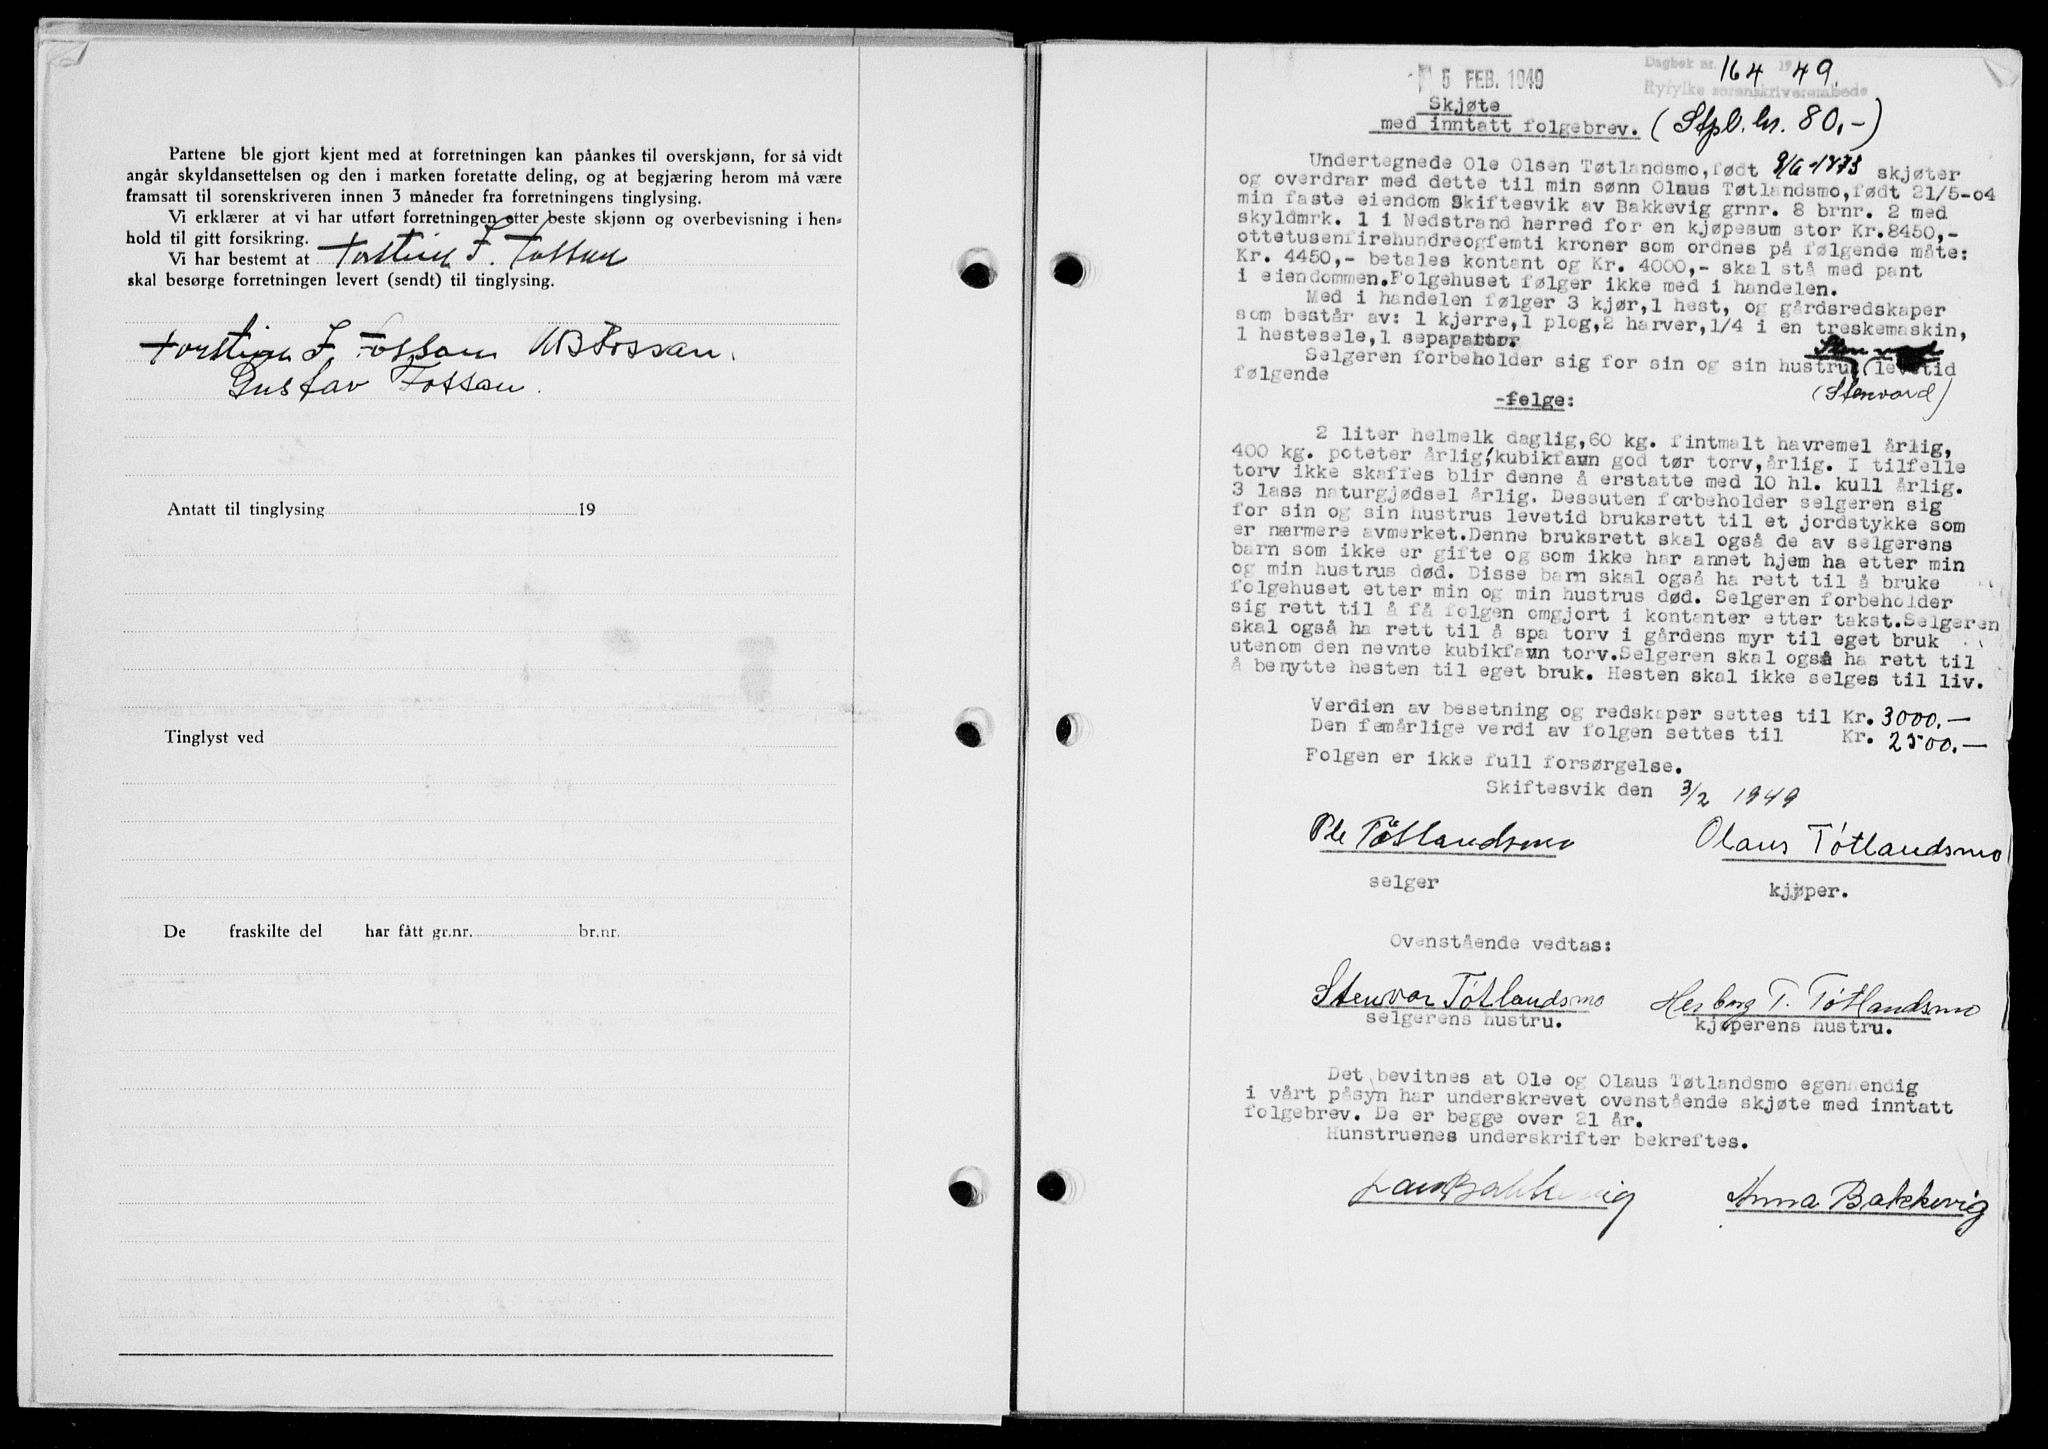 Partene ble gjort kjent med at forretningen kan påankes til overskjønn, for så vidt
angår skyldansettelsen og den i marken foretatte deling, og at begjæring herom må være
framsatt til sorenskriveren innen 3 måneder fra forretningens tinglysing.
Vi erklærer at vi har utført forretningen etter beste skjønn og overbevisning i hen-
hold til gitt forsikring.
Vi har bestemt at Torstein F. Fossan
skal besørge forretningen levert (sendt) til tinglysing.
Torstein F. Fossan Fossan.
Gustav Fossan.
Antatt til tinglysing 19
Tinglyst ved
De fraskilte del har fått gr.nr. br.nr.
5 FEB. 1949
Dagbok nr. 164 1949.
Ryfylke sorenskriverembede
Skjøte
med inntatt folgebrev. (Stpl. kr. 80,-)
Undertegnede Ole Olsen Tøtlandsmo, født 9/6-1873 skjøter
og overdrar med dette til min sønn Olaus Tøtlandsmo, født 21/5-04
min faste eiendom Skiftesvik av Bakkevig grnr. 8 brnr. 2 med
skyldmrk. 1 i Nedstrand herred for en kjøpesum stor Kr.8450,-
ottetusenfirehundreogfemti kroner som ordnes på følgende måte:
Kr. 4450,- betales kontant og Kr. 4000,- skal stå med pant
i eiendommen. Folgehuset følger ikke med i handelen.
Med i handelen følger 3 kjør, 1 hest, og gårdsredskaper
som består av: 1 kjerre, 1 plog, 2 harver, 1/4 i en treskemaskin,
1 hestesele, 1 separator.
Selgeren forbeholder sig for sin og sin hustru (levetid
følgende
(Stenvord)
-folge:
2 liter helmelk daglig, 60 kg. fintmalt havremel årlig,
400 kg. poteter årlig, 1 kubikfavn god tør torv, årlig. I tilfelle
torv ikke skaffes blir denne å erstatte med 10 hl. kull årlig.
3 lass naturgjødsel årlig. Dessuten forbeholder selgeren sig
for sin og sin hustrus levetid bruksrett til et jordstykke som
er nærmere avmerket. Denne bruksrett skal også de av selgerens
barn som ikke er gifte og som ikke har annet hjem ha etter min
og min hustrus død. Disse barn skal også ha rett til å bruke
folgehuset etter min og min hustrus død. Selgeren forbeholder
sig rett til å få folgen omgjort i kontanter etter takst. Selgeren
skal også ha rett til å spa torv i gårdens myr til eget bruk
utenom den nevnte kubikfavn torv. Selgeren skal også ha rett til
å benytte hesten til eget bruk. Hesten skal ikke selges til liv.
Verdien av besetning og redskaper settes til Kr. 3000.-
Den femårlige verdi av folgen settes til Kr. 2500.-
Folgen er ikke full forsørgelse.
Skiftesvik den 3/2 1949
Ole Tøtlandsmo Olaus Tøtlandsmo
selger kjøper.
Ovenstående vedtas:
Stenvor Tøtlandsmo Herborg T. Tøtlandsmo
selgerens hustru. kjøperens hustru.
Det bevitnes at Ole og Olaus Tøtlandsmo egenhendig
i vårt påsyn har underskrevet ovenstående skjøte med inntatt
folgebrev. De er begge over 21 år.
Hunstruenes underskrifter bekreftes.
Lars Bakkevig Anna Bakkevig